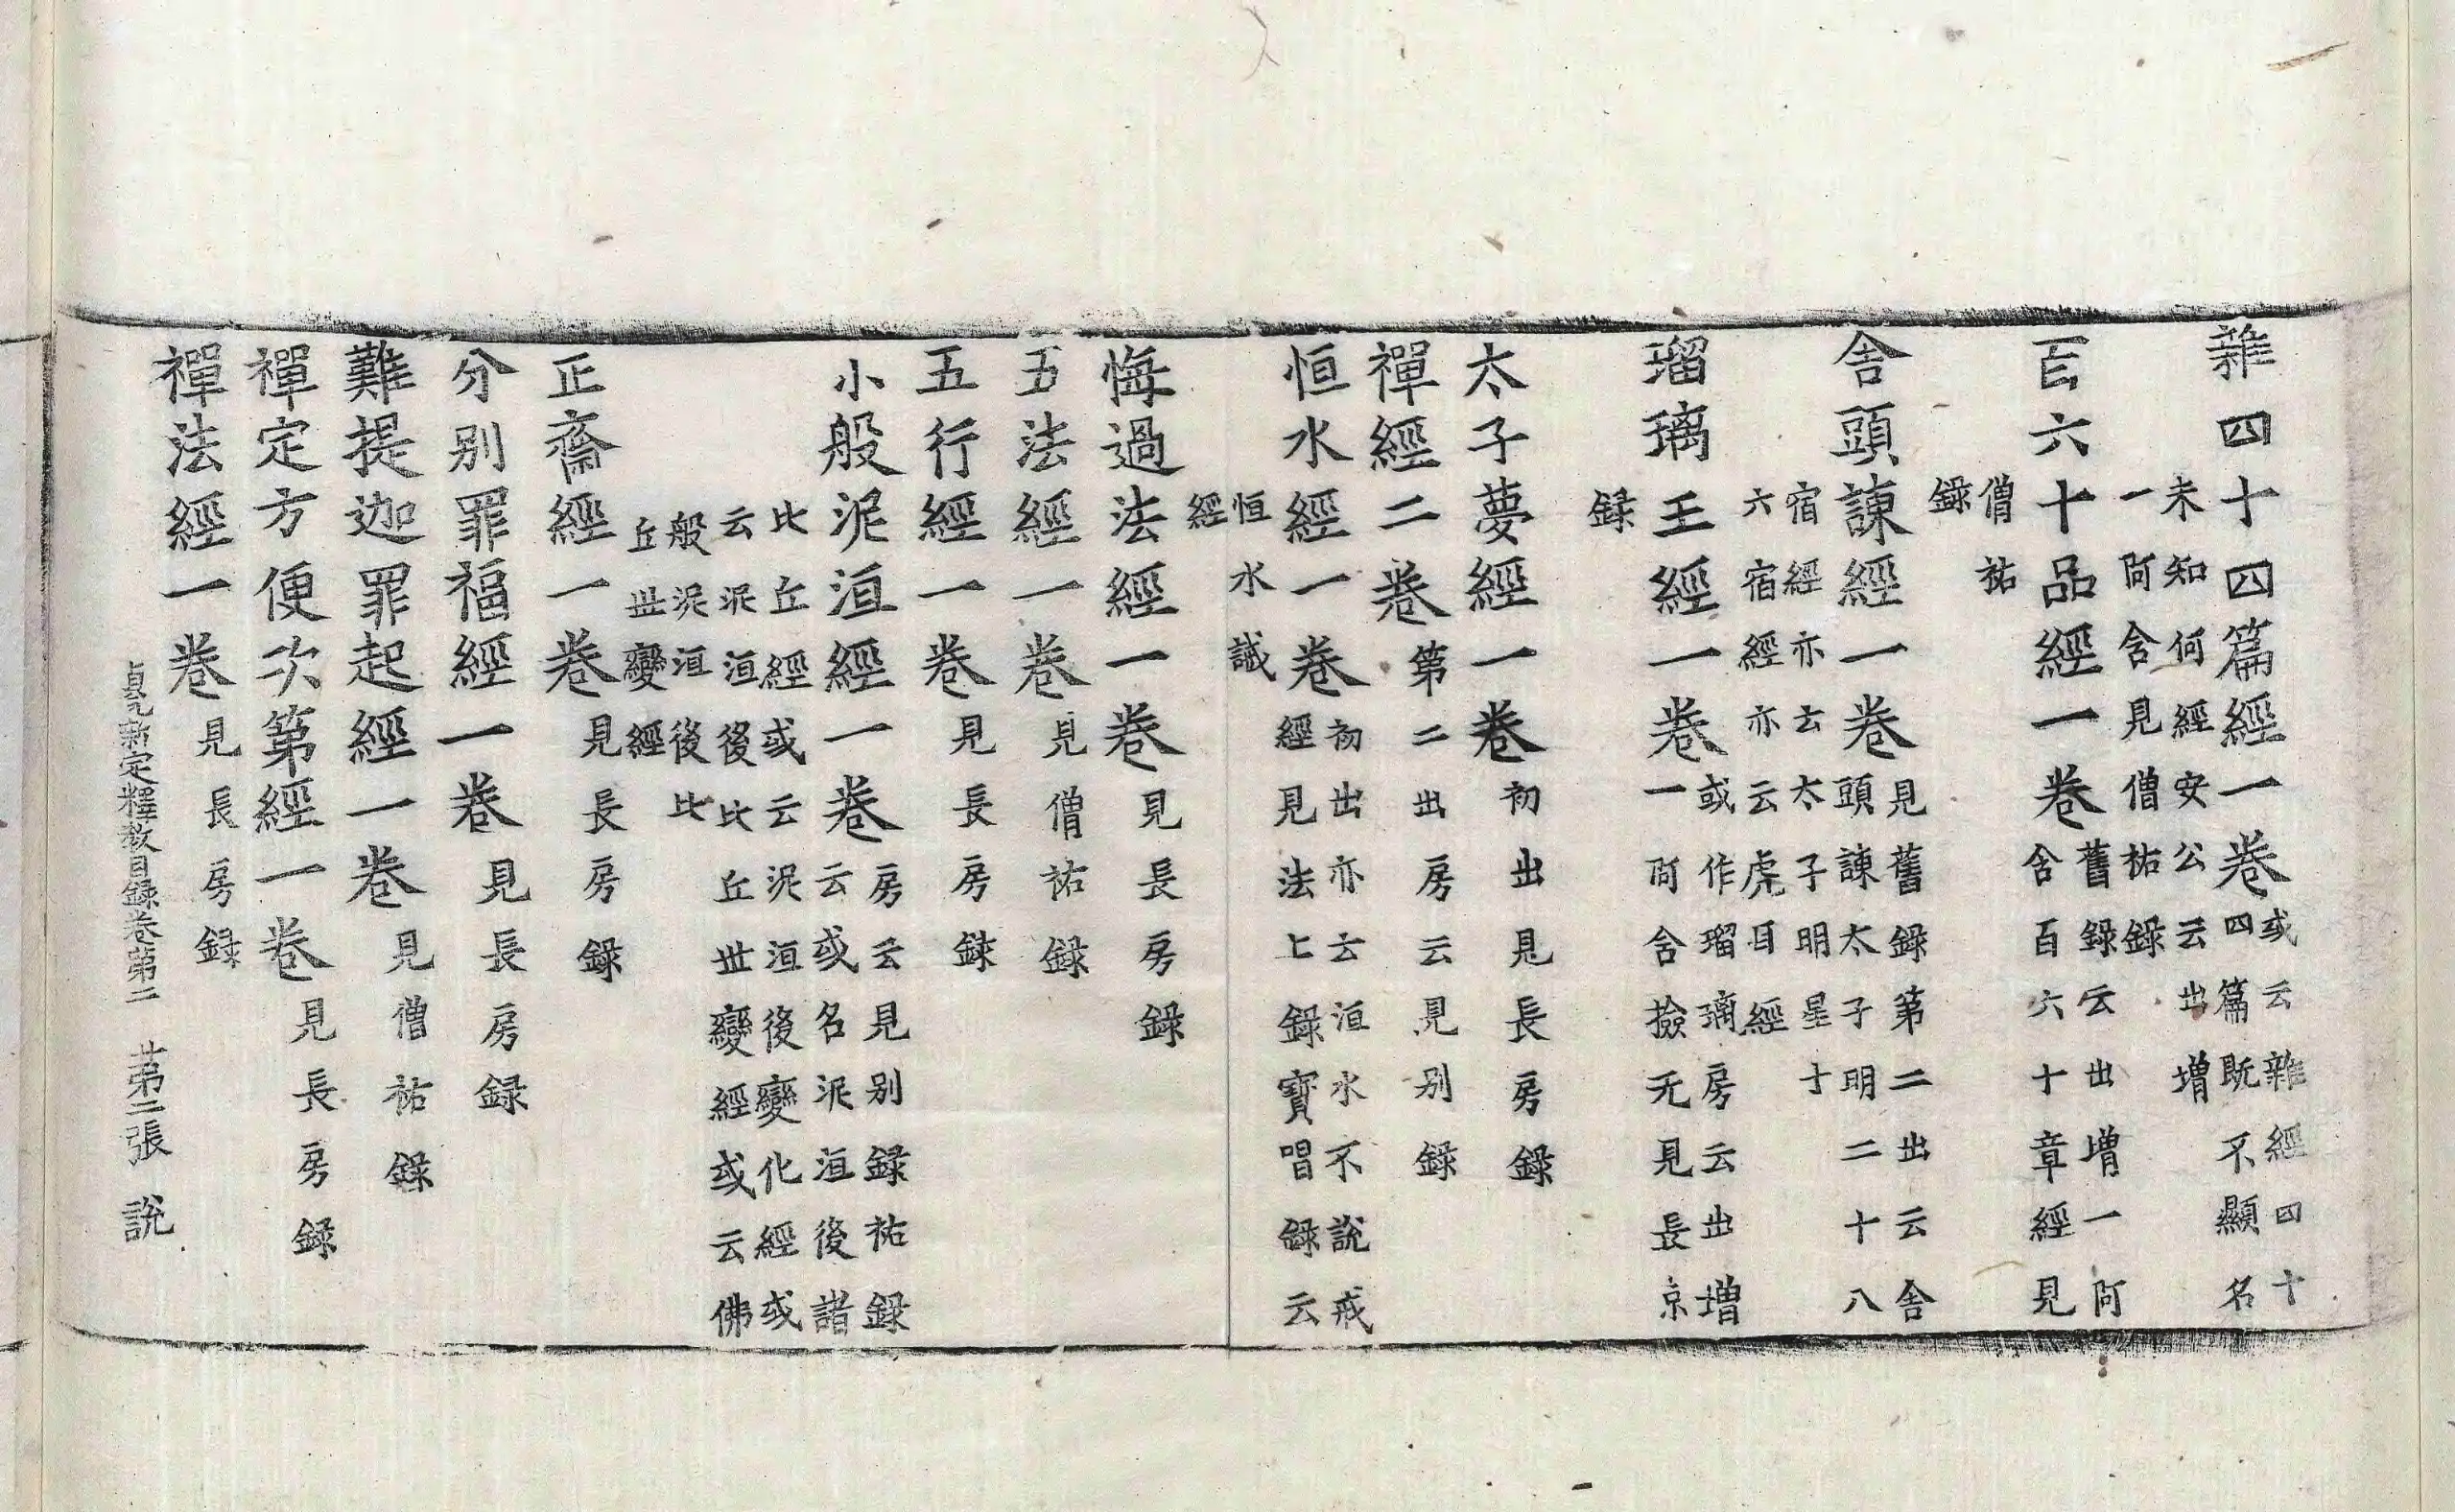 雜四十四篇經一卷或云雜經四十四篇既不顯名
未知何經安公云出增一阿含見僧祐録
百六十品經一卷舊録云出增一阿含百六十章經見
僧祐録
舍頭諫經一卷見舊録第二出云舍頭諫太子明二十八
宿經亦云太子明星十六宿經亦云虎耳經
瑠璃王經一卷或作瑠璃房云出增一阿含撿无見長京
録
太子夢經一卷初出見長房録
禪經二卷第二出房云見别録
恒水經一卷初出亦云洹水不說戒經見法上録寶唱録云
恒水誡經
悔過法經一卷見長房録
五法經一卷見僧祐録
五行經一卷見長房録
小般泥洹經一卷房云見别録祐録云或名泥洹後諸
比丘經或云泥洹後變化經或云泥洹後比丘世變經或云佛
般泥洹後比丘世變經
正齋經一卷見長房録
分别罪福經一卷見長房録
難提迦罪起經一卷見僧祐録
禪定方便次第經一卷見長房録
禪法經一卷見長房録
貞元新定釋教目録卷第二 第二張 說